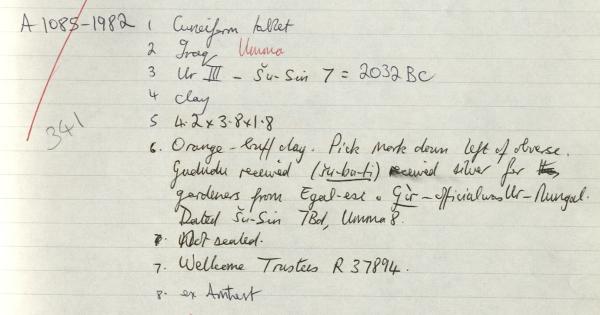 A 1085-1982 1 Cuneiform tablet
2 Iraq Umma
3 Ur III - Šu-Sin 7 = 2032 BC
4 clay
341
5 4.2 x 3.8 x 1.8
6. Orange-buff clay. Pick mark down left of obverse.
Gududu received (šu-ba-ti) silver for
gardeners from Egal-esi. Gìr-official was Ur-Nungal.
Dated Šu-Sin 7Bd, Umma 8.
Not sealed.
7. Wellcome Trustees R 37894.
8. ex Amherst